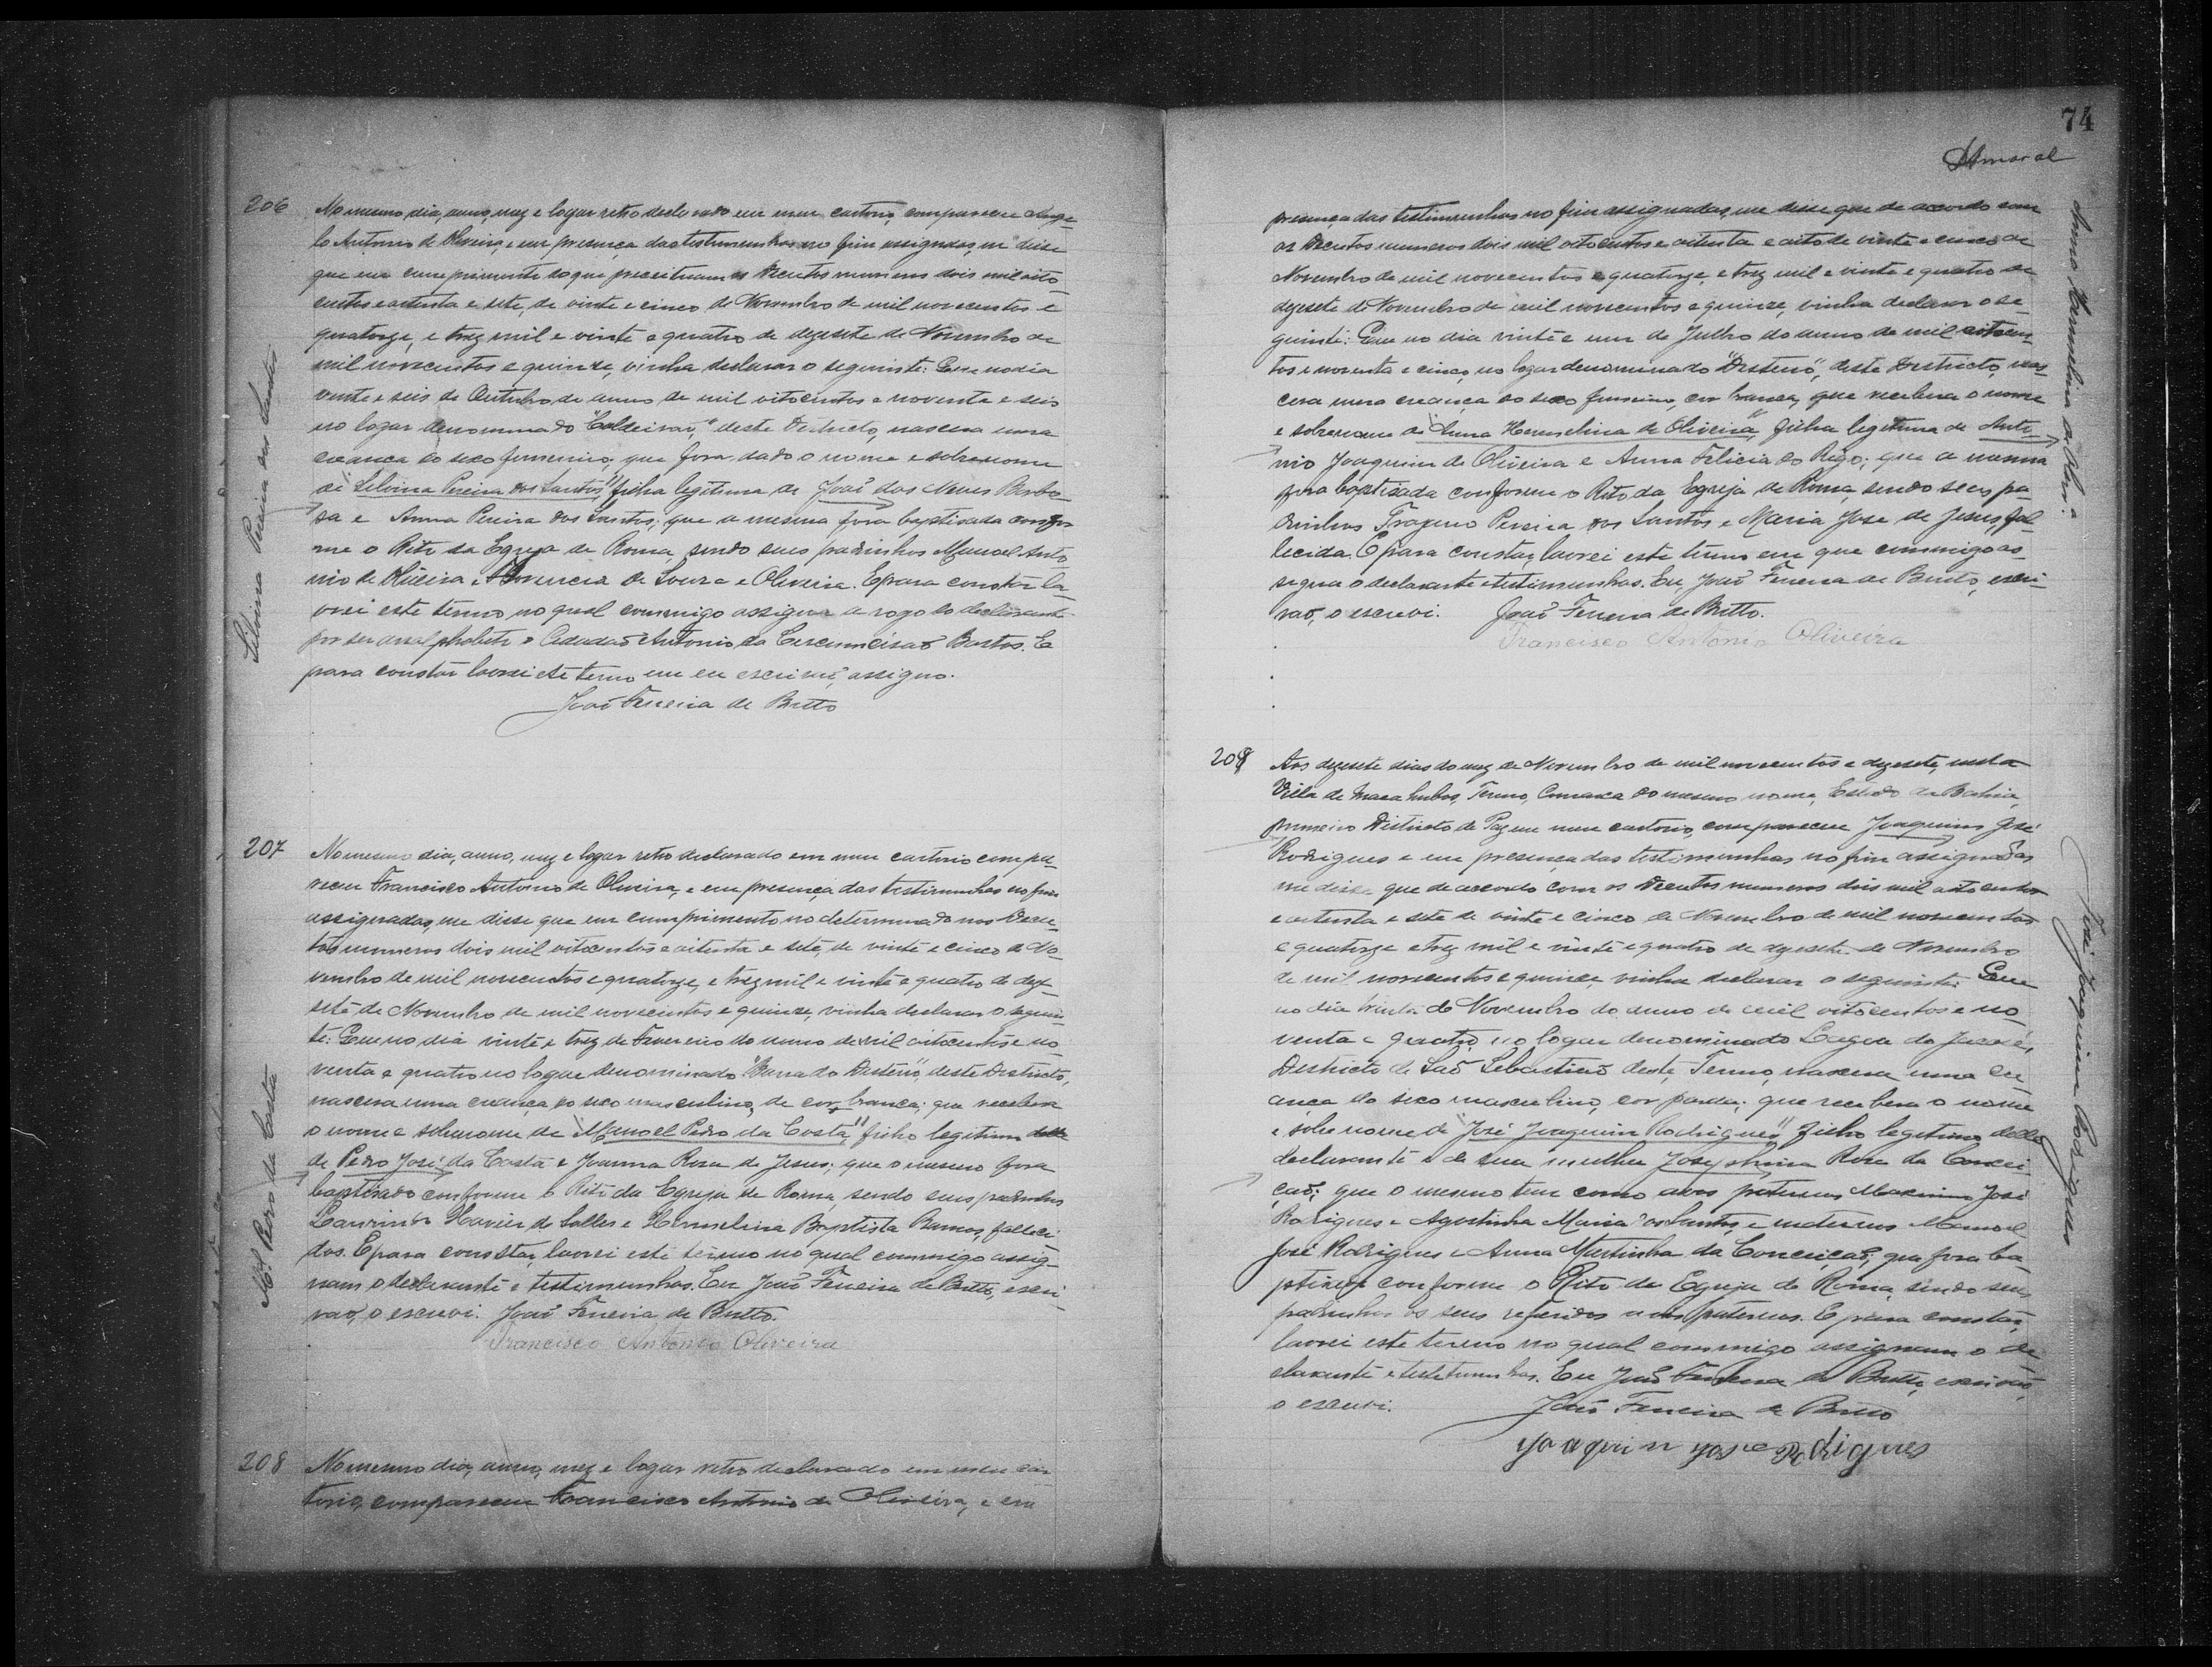 206
No mesmo dia, anno, mez e logar retro declarado em meu cartorio, compareceu Ange-
lo Antonio de Oliveira, e em presença das testimunhas no fim assignadas, me disse
que em cumprimento do que preceituam os Decretos numeros dois mil oito
centos e oitenta e sete, de vinte e cinco de Novembro de mil novecentos e
quatorze, e trez mil e vinte e quatro de dezesete de Novembro de
mil novecentos e quinze, vinha declarar o seguinte: Que no dia
vinte e seis de Outubro do anno de mil oitocentos e noventa e seis
no logar denominado "Caldeirão," deste Districto, nascera uma
creança do sexo femenino, que fora dado o nome e sobrenome
de "Silvina Pereira dos Santos," filha legitima de João das Neves Barbo-
sa e Anna Pereira dos Santos; que a mesma fora baptisada confor
me o Rito da Egreja de Roma, sendo seus padrinhos Manoel Anto
nio de Oliveira e Florencia de Souza e Oliveira. E para constar la-
vrei este termo no qual commigo assigna a rogo do declarante
por ser analphabeto o Cidadão Antonio da Circumcisão Bastos. E
para constar lavrei este termo em eu escrivão, assigno.
João Ferreira de Britto
Silvina Pereira dos Santos
207
No mesmo dia, anno, mez e logar retro declarado em meu cartorio compa-
receu Francisco Antonio de Oliveira, e em presença das testimunhas no fim
assignadas, me disse que em cumprimento no determinado nos Decre-
tos numeros dois mil oitocentos e oitenta e sete, de vinte e cinco de No-
vembro de mil novecentos e quatorze, e trez mil e vinte e quatro de deze-
sete de Novembro de mil novecentos e quinze, vinha declarar o seguin-
te: Que no dia vinte e trez de Fevereiro do anno de mil oitocentos e no-
venta e quatro no logar denominado "Barra do Desterro", deste Districto,
nascera uma creança do sexo masculino, de cor branca; que recebera
o nome e sobrenome de "Manoel Pedro da Costa," filho legitimo
de Pedro José da Costa e Joanna Rosa de Jesus; que o mesmo fora
baptisado conforme o Rito da Egreja de Roma, sendo seus padrinhos
Laurindo Xavier de Salles e Hermelina Baptista Ramos, falleci
dos. E para constar, lavrei este termo no qual commigo assig-
nam o declarante e testimunhas. Eu João Ferreira de Britto, escri-
vão, o escrevi. João Ferreira de Britto.
Francisco Antonio Oliveira
Mel. Pedro da Costa
208
No mesmo dia, anno, mez e logar retro declarado em meu car
torio, compareceu Francisco Antonio de Oliveira, e em
74
Amaral
presença das testimunhas no fim assignadas, me disse que de accordo com
os Decretos numeros dois mil oitocentos e oitenta e oito de vinte e cinco de
Novembro de mil novecentos e quatorze, e trez mil e vinte e quatro de
dezesete de Novembro de mil novecentos e quinze, vinha declarar o se-
guinte: Que no dia vinte e um de Julho do anno de mil oitocen-
tos e noventa e cinco, no logar denominado "Desterro", deste Districto, nas-
cera uma creança do sexo femenino, cor branca, que recebera o nome
e sobrenome de "Anna Hermelina de Oliveira", filha legitima de Anto-
nio Joaquim de Oliveira e Anna Felicia do Rego; que a mesma
fora baptisada conforme o Rito da Egreja de Roma, sendo seus pa-
drinhos Trazeno Pereira dos Santos e Maria José de Jesus, fal-
lecida. E para constar, lavrei este termo em que commigo as-
signa o declarante e testimunhas. Eu, João Ferreira de Britto, escri-
vão, o escrevi. João Ferreira de Britto.
Francisco Antonio Oliveira
Anna Hermelina de Oliv.ª
209
Aos dezesete dias do mez de Novembro de mil novecentos e dezesete, nesta
Villa de Macahubas, Termo, Comarca do mesmo nome, Estado da Bahia,
primeiro Districto de Paz em meu cartorio, compareceu Joaquim José
Rodrigues e em presença das testimunhas no fim assignadas
me disse que de accordo com os Decretos numeros dois mil oito centos
e oitenta e sete de vinte e cinco de Novembro de mil novecentos
e quatorze e trez mil e vinte e quatro de dezesete de Novembro
de mil novecentos e quinze, vinha declarar o seguinte: Que
no dia trinta de Novembro do anno de mil oitocentos e no-
venta e quatro, no logar denominado Lagoa do Jacaré,
Districto de São Sebastião deste Termo, nascera uma cre
ança do sexo masculino, cor parda; que recebera o nome
e sobre nome de "José Joaquim Rodrigues" filho legitimo delle
declarante e de sua mulher Josephina Rosa da Concei-
ção; que o mesmo tem como avos paternos Maximo José
Rodrigues e Agostinha Maria dos Santos, e maternos Manoel
José Rodrigues e Anna Martinha da Conceição; que fora ba-
ptisado conforme o Rito da Egreja de Roma, sendo seus
padrinhos os seus referidos avos paternos. E para constar,
lavrei este termo no qual commigo assignam o de-
clarante e testetimunhas. Eu João Ferreira de Britto, escrivão,
o escrevi. João Ferreira de Britto
Joaquim José Rodrigues
José Joaquim Rodrigues